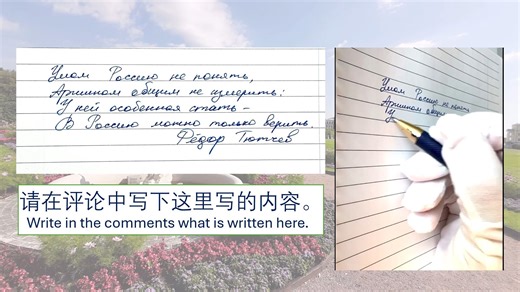 Умом Россию не понять,
Аршином общим не измерить:
У ней особенная стать –
В Россию можно только верить.
Фёдор Тютчев
Умом Россию не понять
Аршином общим
У
请在评论中写下这里写的内容。
Write in the comments what is written here.